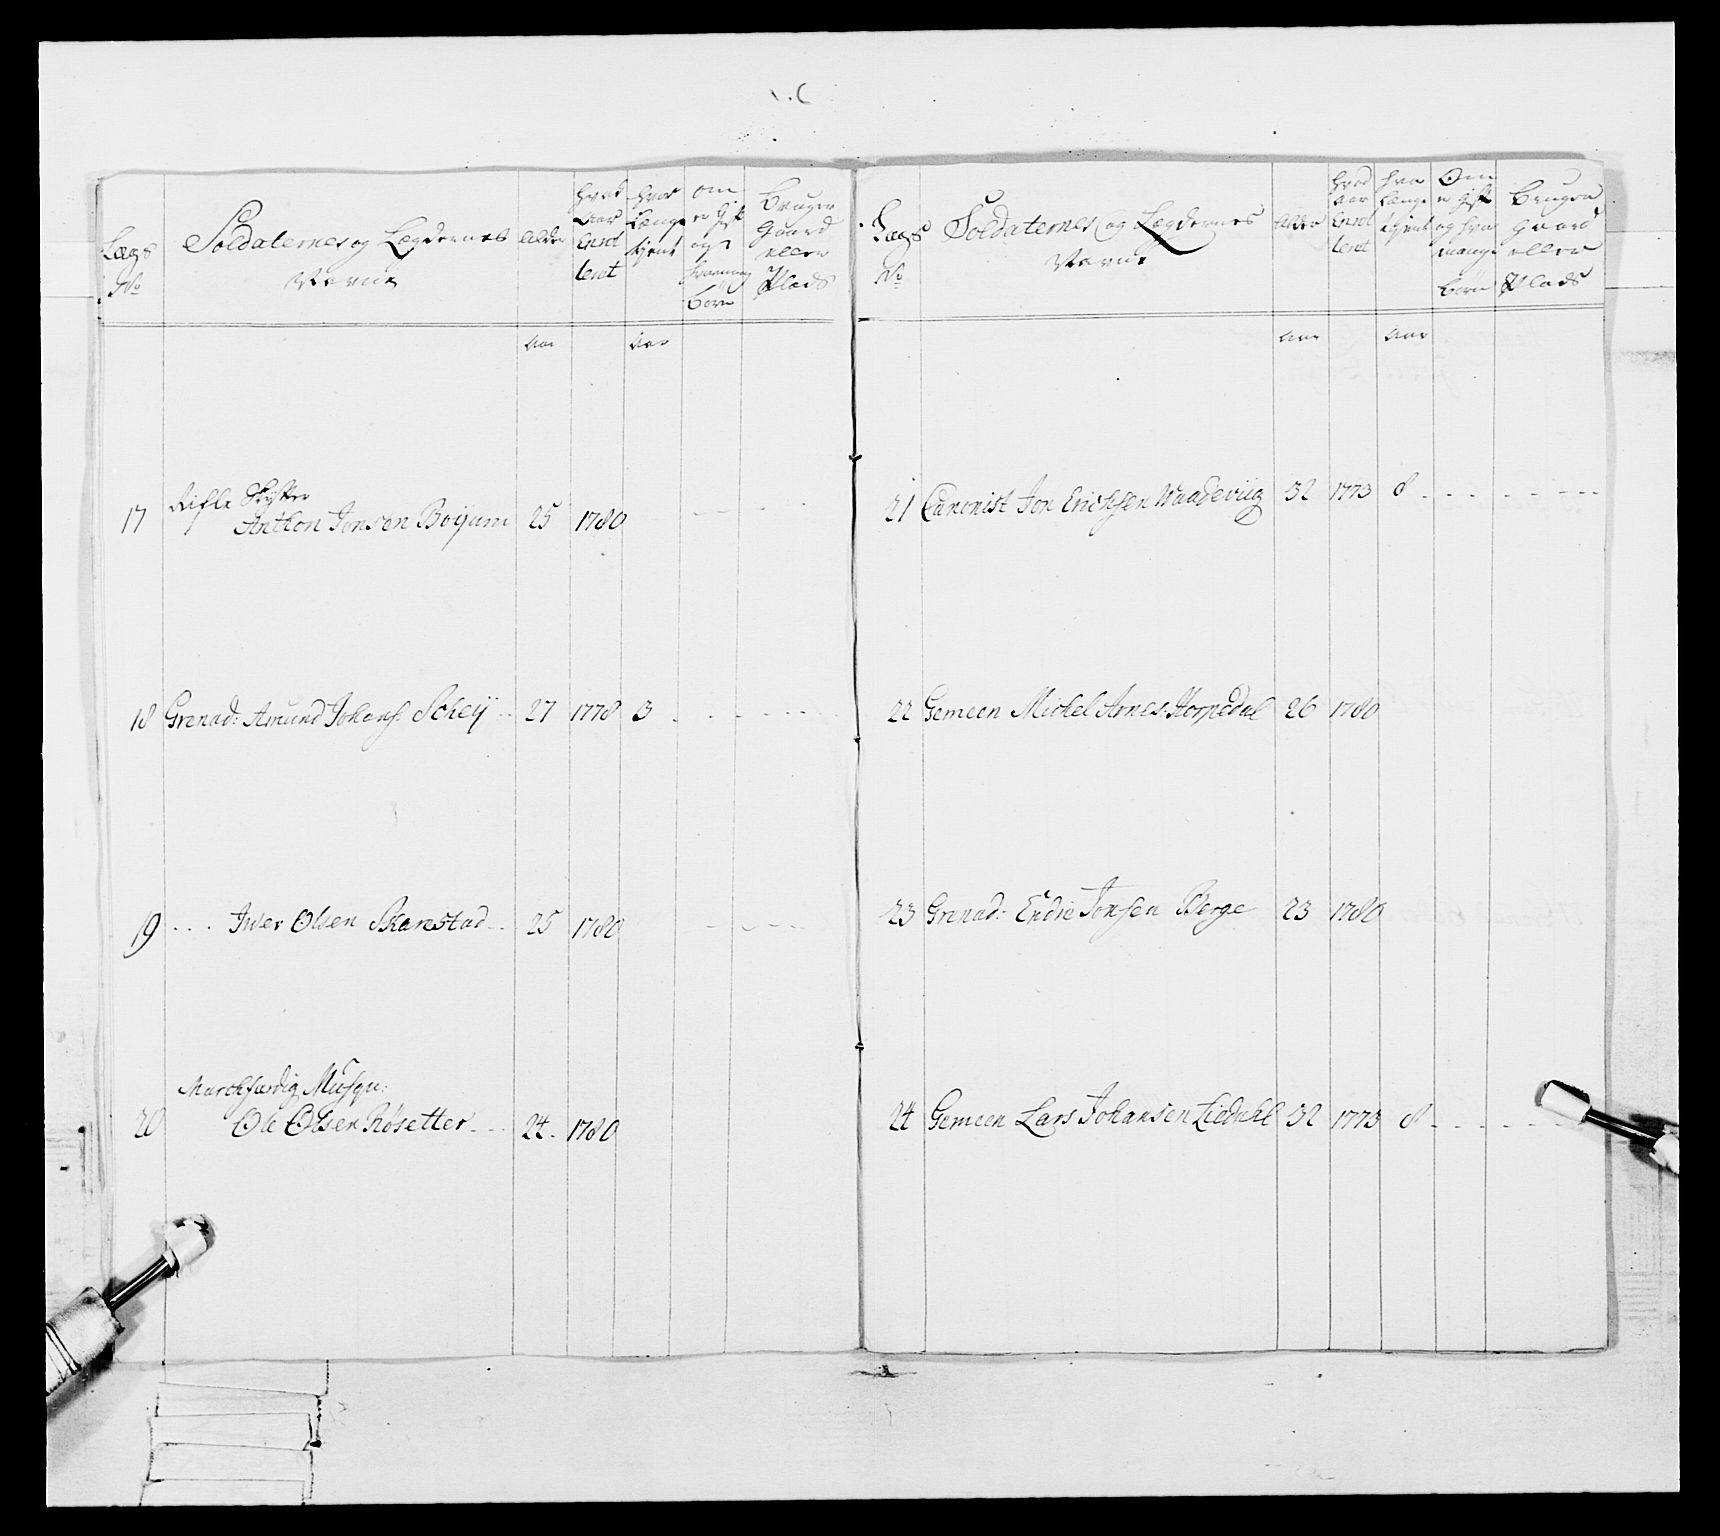 Lægs No
Soldaternes og Lægdernes Navne
Alder
hvad Aar Enrolleret
hvor Længe tjent
om er Gift og hvormange Børn
Bruger Gaard eller Plads
Aar
Aar
17 Rifle Skytter
Anthon Jonsen Boyum 25 1780
18 Grenad: Amund Johans: Scheij 27 1778 3
19 Iver Olsen Skarestad 25 1780
Marchfærdig Musqu:
20 Ole Olsen Røsetter 24 1780
Lægs No
Soldaternes og Lægdernes Navne
Alder
hvad Aar Enrolleret
hvor Længe tjent
Om er Gift og hvor mange Børn
Bruger Gaard eller Plads
Aar
Aar
21 Canonist Jon Erichsen Waadeviig 32 1773 8
22 Gemeen Michel Arnes: 26 1780
23 Grenad: Endre Jonsen Berge 23 1780
24 Gemeen Lars Johansen Liedahl 32 1773 8